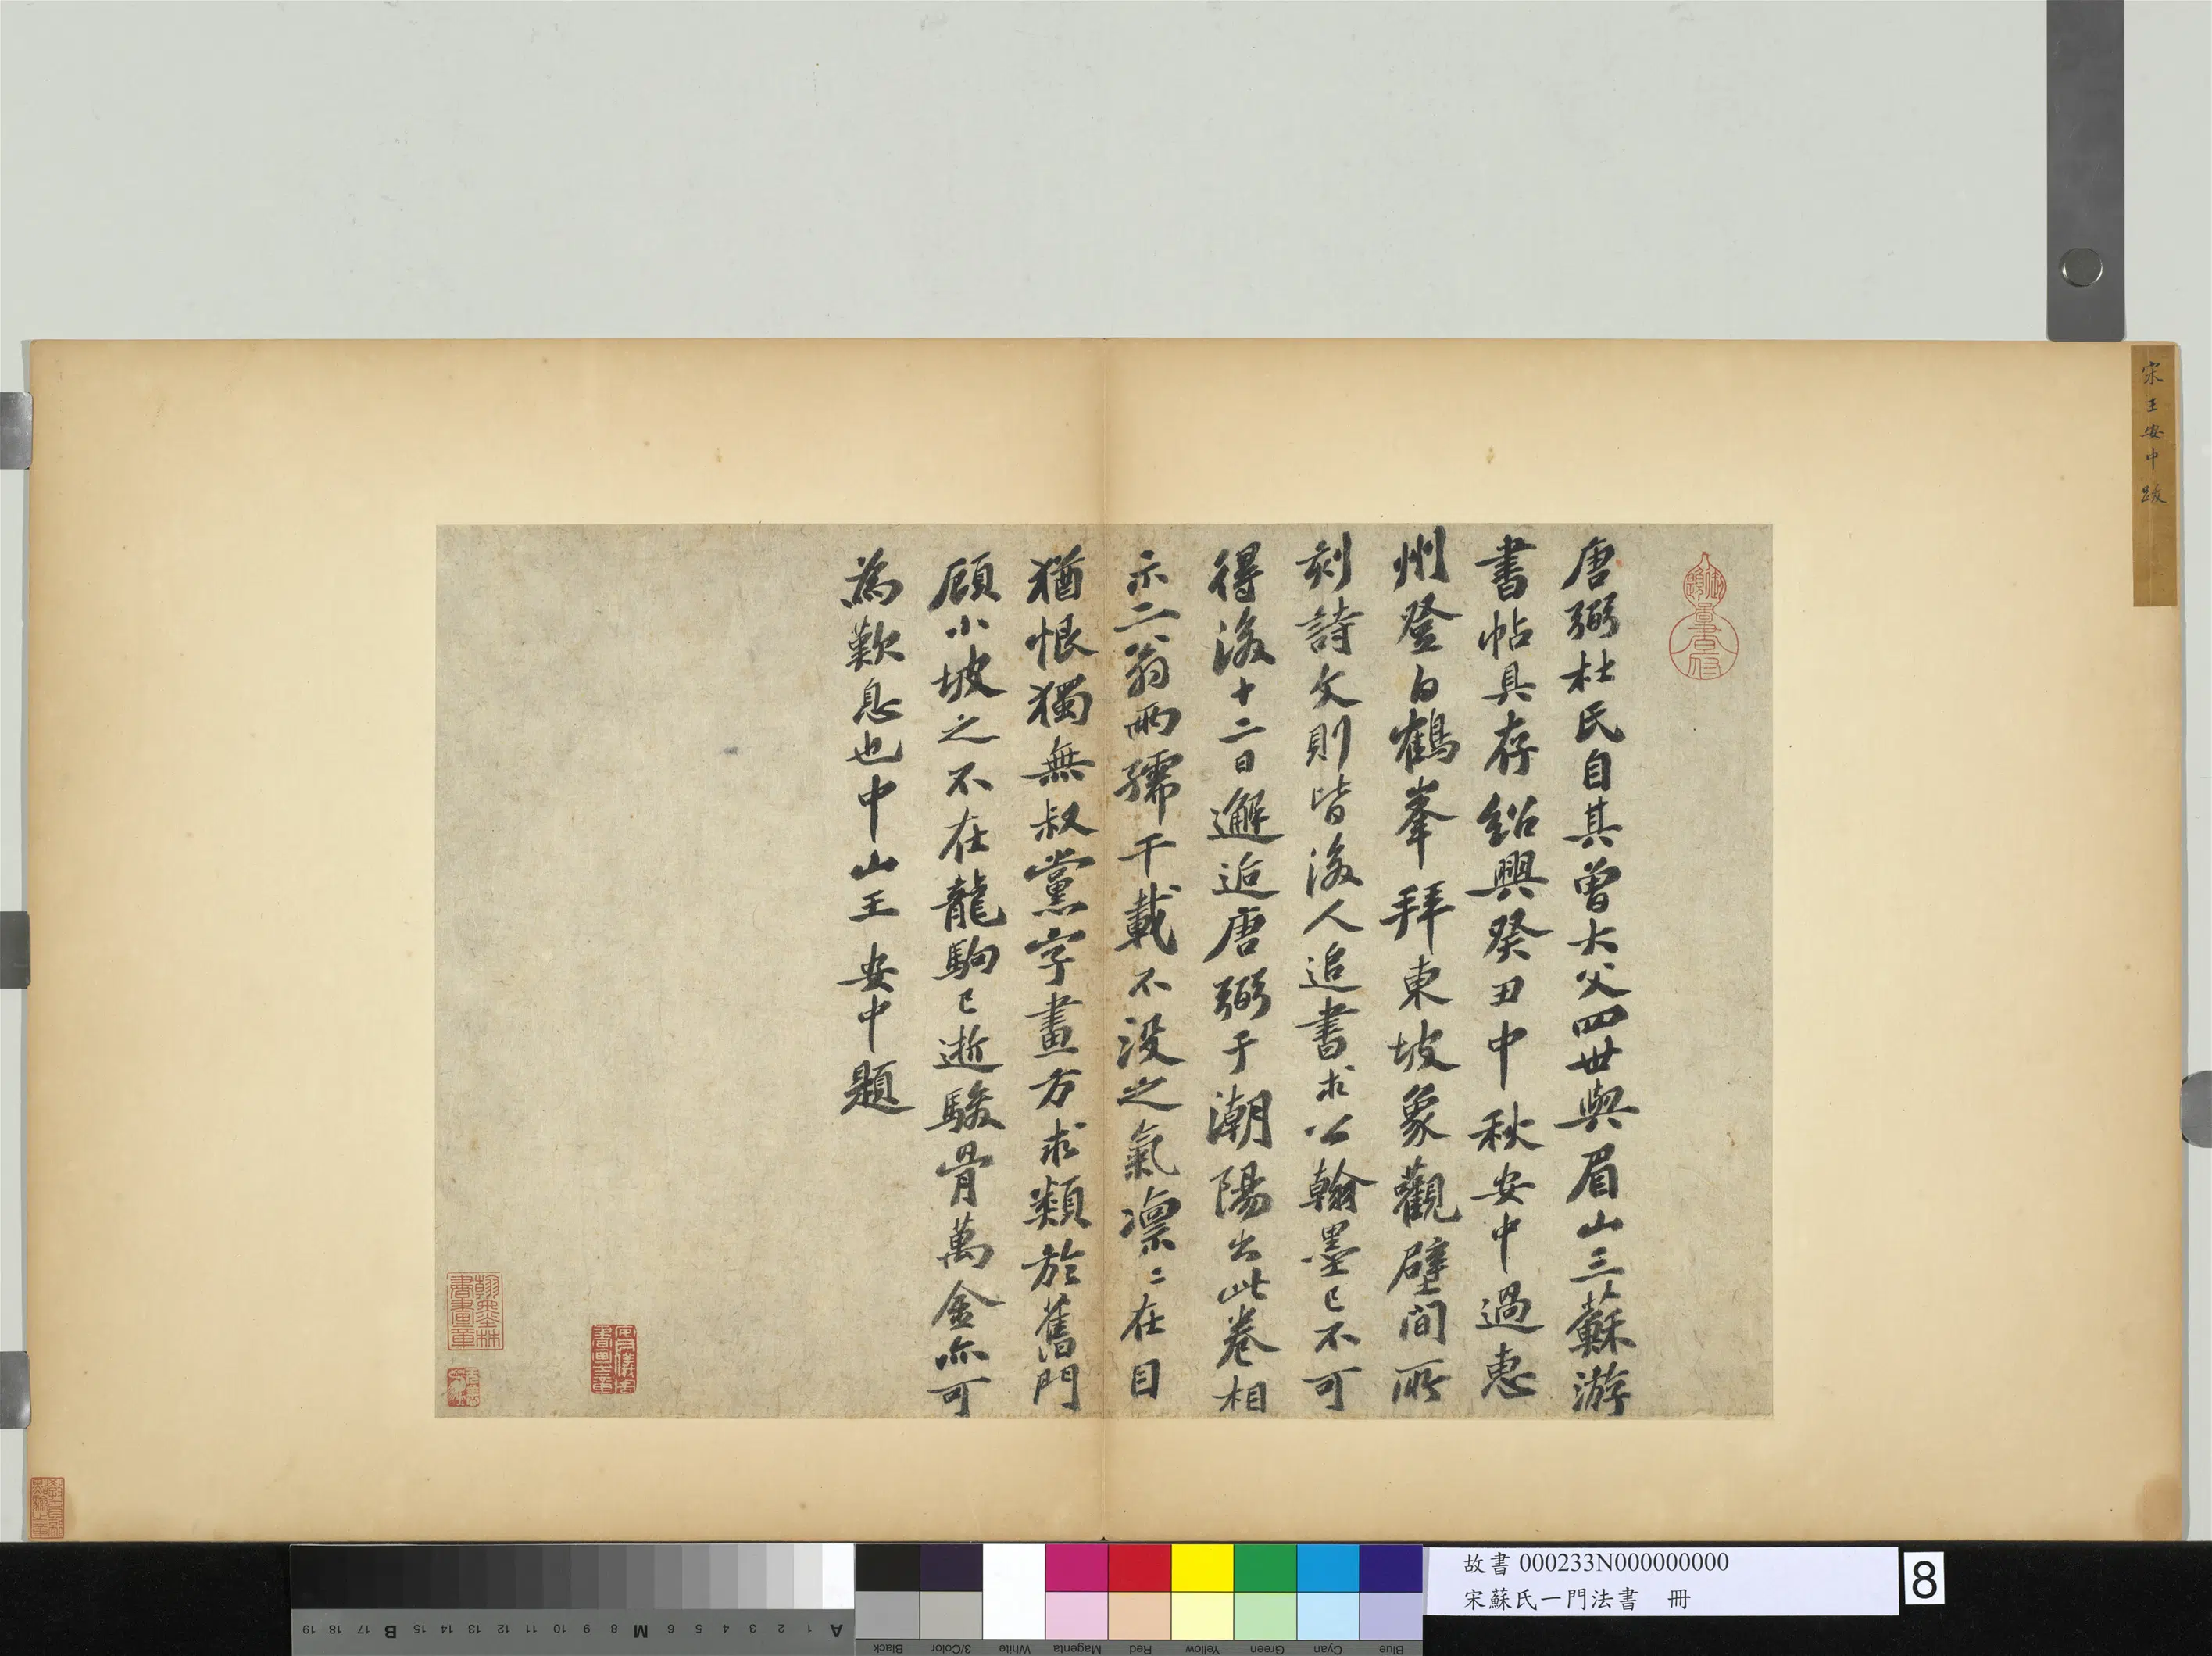 宋王安中跋
唐弼杜氏自其曾大父四世與眉山三蘇游
書帖具存紹興癸丑中秋安中過惠
州登白鶴峯拜東坡象觀壁間所
刻詩文則皆後人追書求公翰墨已不可
得後十二日邂逅唐弼于潮陽出此卷相
示二翁兩孺千載不沒之氣凛〻在目
猶恨獨無叔黨字畫方求類於舊門
顧小坡之不在龍駒已逝駿骨萬金亦可
為歎息也中山王安中題
翰墨林書畫章
安儀周書畫之章
故書 000233N000000000
宋蘇氏一門法書 冊
8
A 1 2 3 4 5 6 7 8 M 9 10 11 12 13 14 15 B 17 18 19
Blue Cyan Green Yellow Red Magenta White 3/Color Black